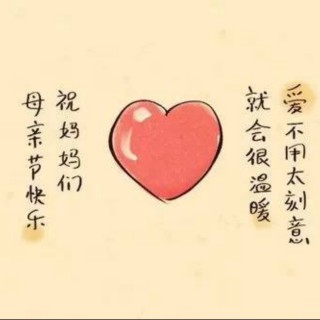 爱不用太刻意
就会很温暖
祝妈妈们
母亲节快乐